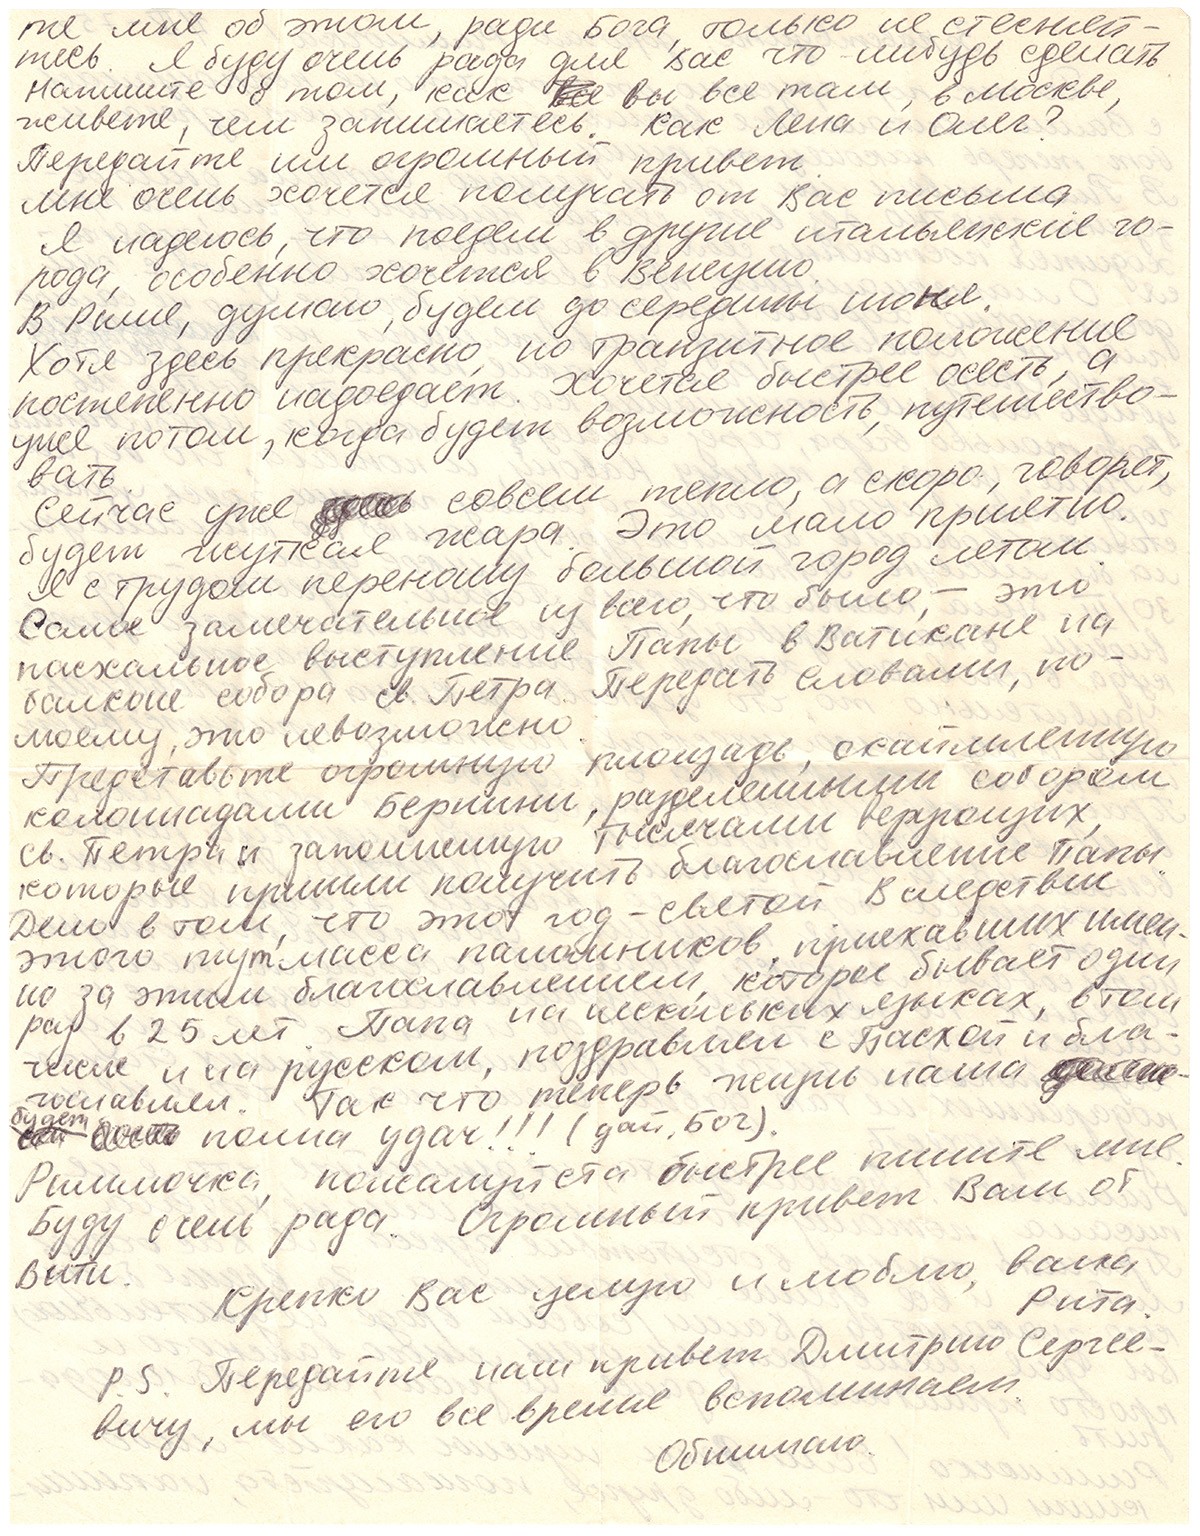 те мне об этом, ради Бога, только не стесняй-
тесь. Я буду очень рада для Вас что-нибудь сделать
Напишите о том, как вы все там, в Москве,
живете, чем занимаетесь. Как Лена и Олег?
Передайте им огромный привет.
Мне очень хочется получать от Вас письма
Я надеюсь, что поедем в другие итальянские го-
рода, особенно хочется в Венецию.
В Риме, думаю, будем до середины июня.
Хотя здесь прекрасно, но транзитное положение
постепенно надоедает. Хочется быстрее осесть, а
уже потом, когда будет возможность, путешество-
вать.
Сейчас уже совсем тепло, а скоро, говорят,
будет жуткая жара. Это мало приятно.
Я с трудом переношу большой город летом.
Самое замечательное из всего, что было, – это
пасхальное выступление Папы в Ватикане на
балконе собора св. Петра. Передать словами, по-
моему, это невозможно.
Представьте огромную площадь, окаймленную
колоннадами Бернини, разделенными собором
св. Петра и заполненную тысячами верующих,
которые пришли получить благославление Папы.
Дело в том, что этот год – святой. Вследствии
этого тут масса паломников, приехавших имен-
но за этим благославлением, которое бывает один
раз в 25 лет. Папа на нескольких языках, в том
числе и на русском, поздравлял с Пасхой и бла-
гославлял. Так что теперь жизнь наша
будет полна удач!!! (дай, Бог).
Риммочка, пожалуйста быстрее пишите мне.
Буду очень рада. Огромный привет Вам от
Вити.
Крепко Вас целую и люблю, ваша
Рита.
P.S. Передайте наш привет Дмитрию Сергее-
вичу, мы его все время вспоминаем.
Обнимаю.